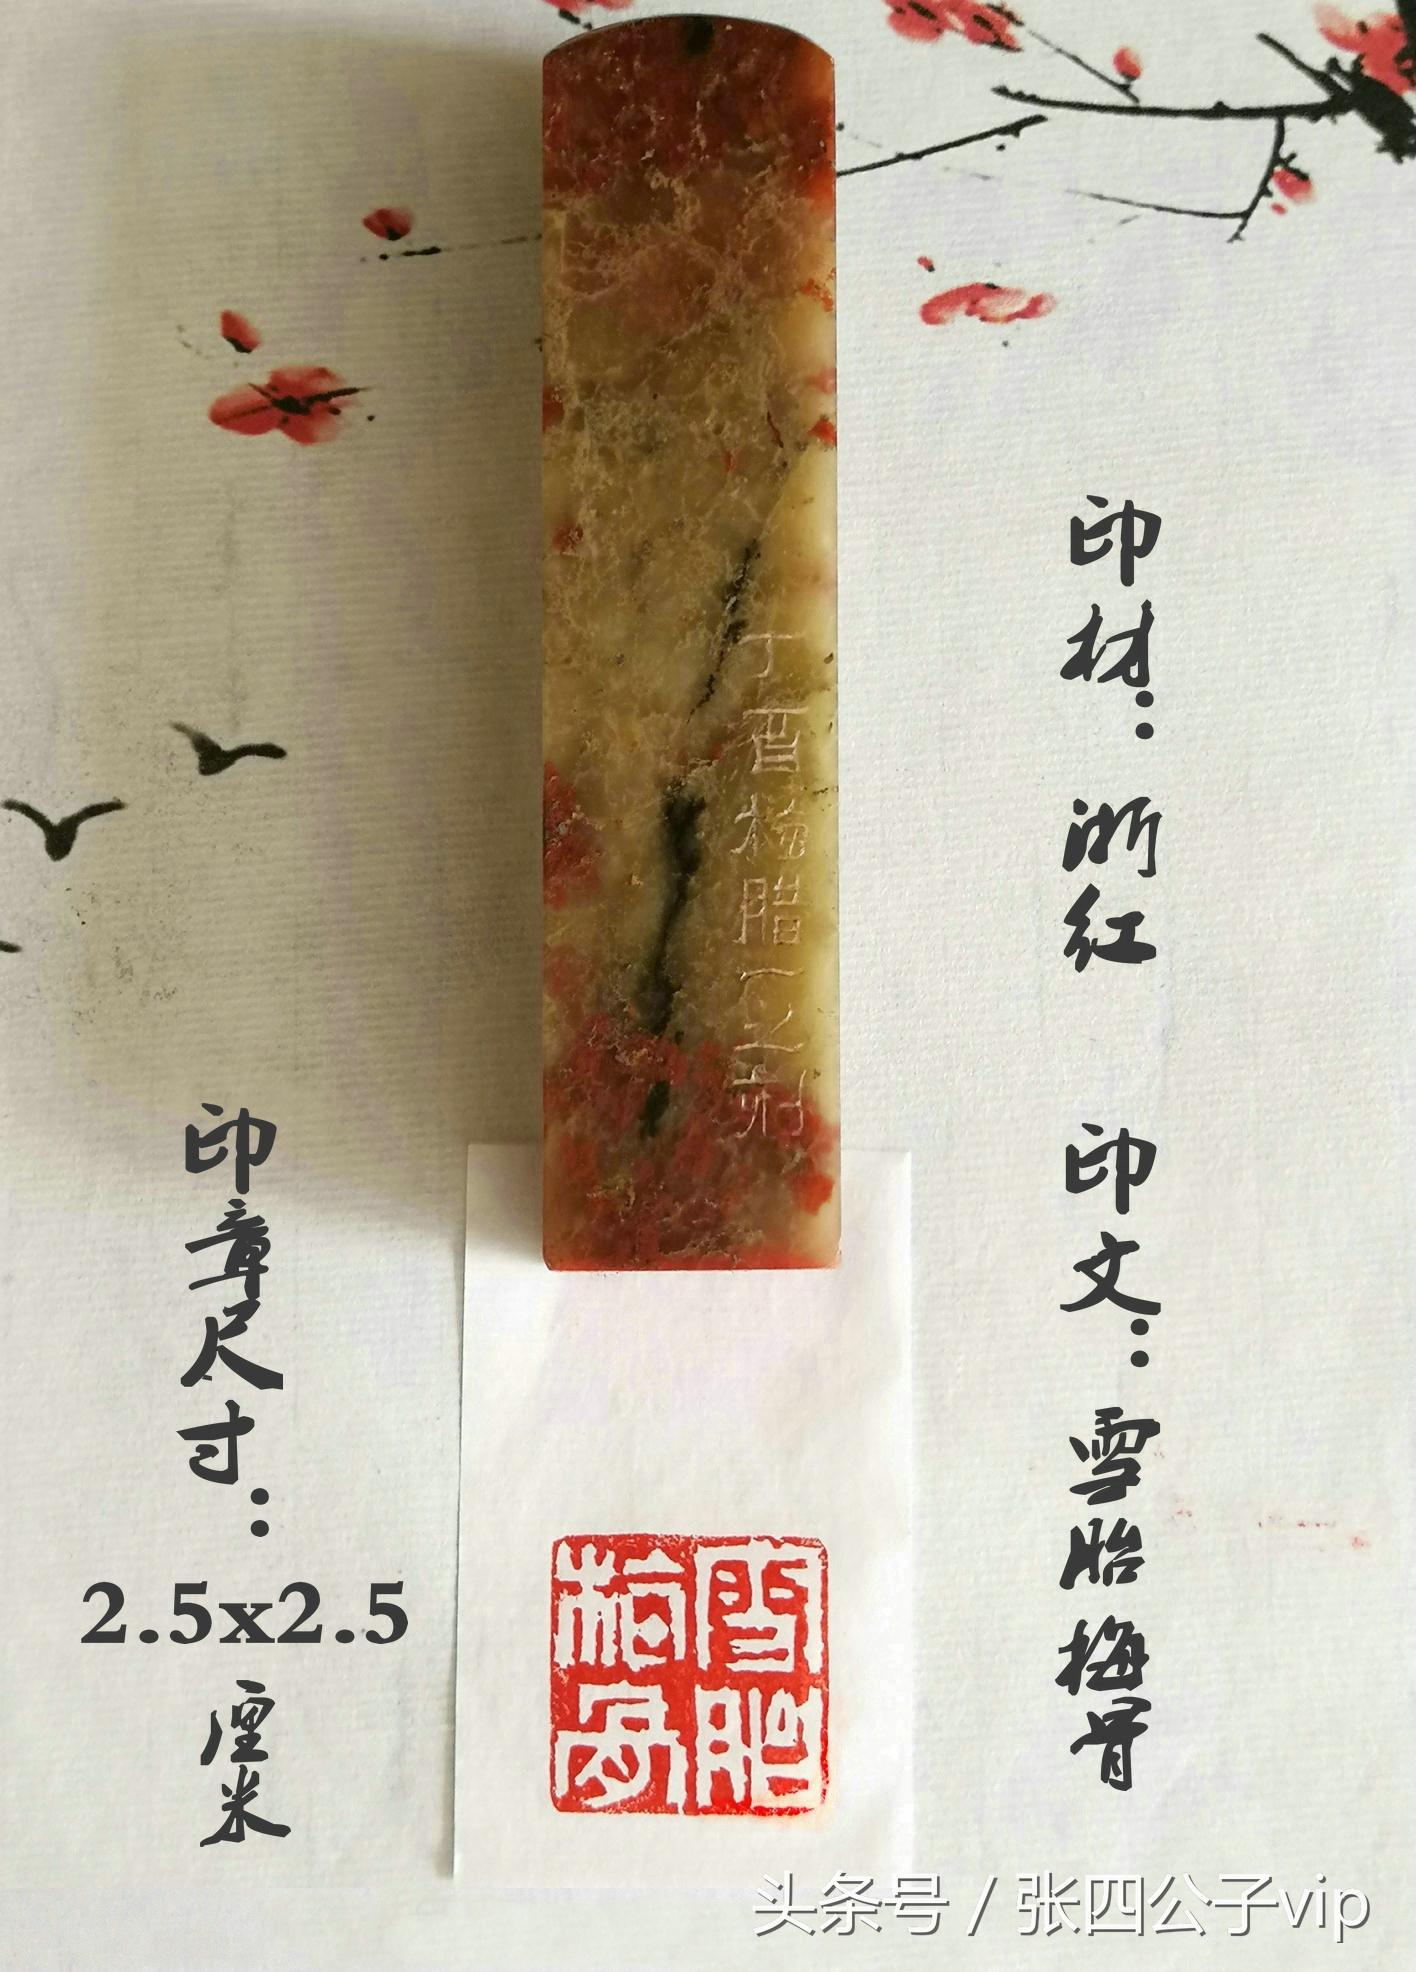 印材：浙红
印文：雪胎梅骨
印章尺寸：
2.5x2.5
厘米
丁酉梅腊一之刻
雪胎
梅骨
头条号 / 张四公子vip